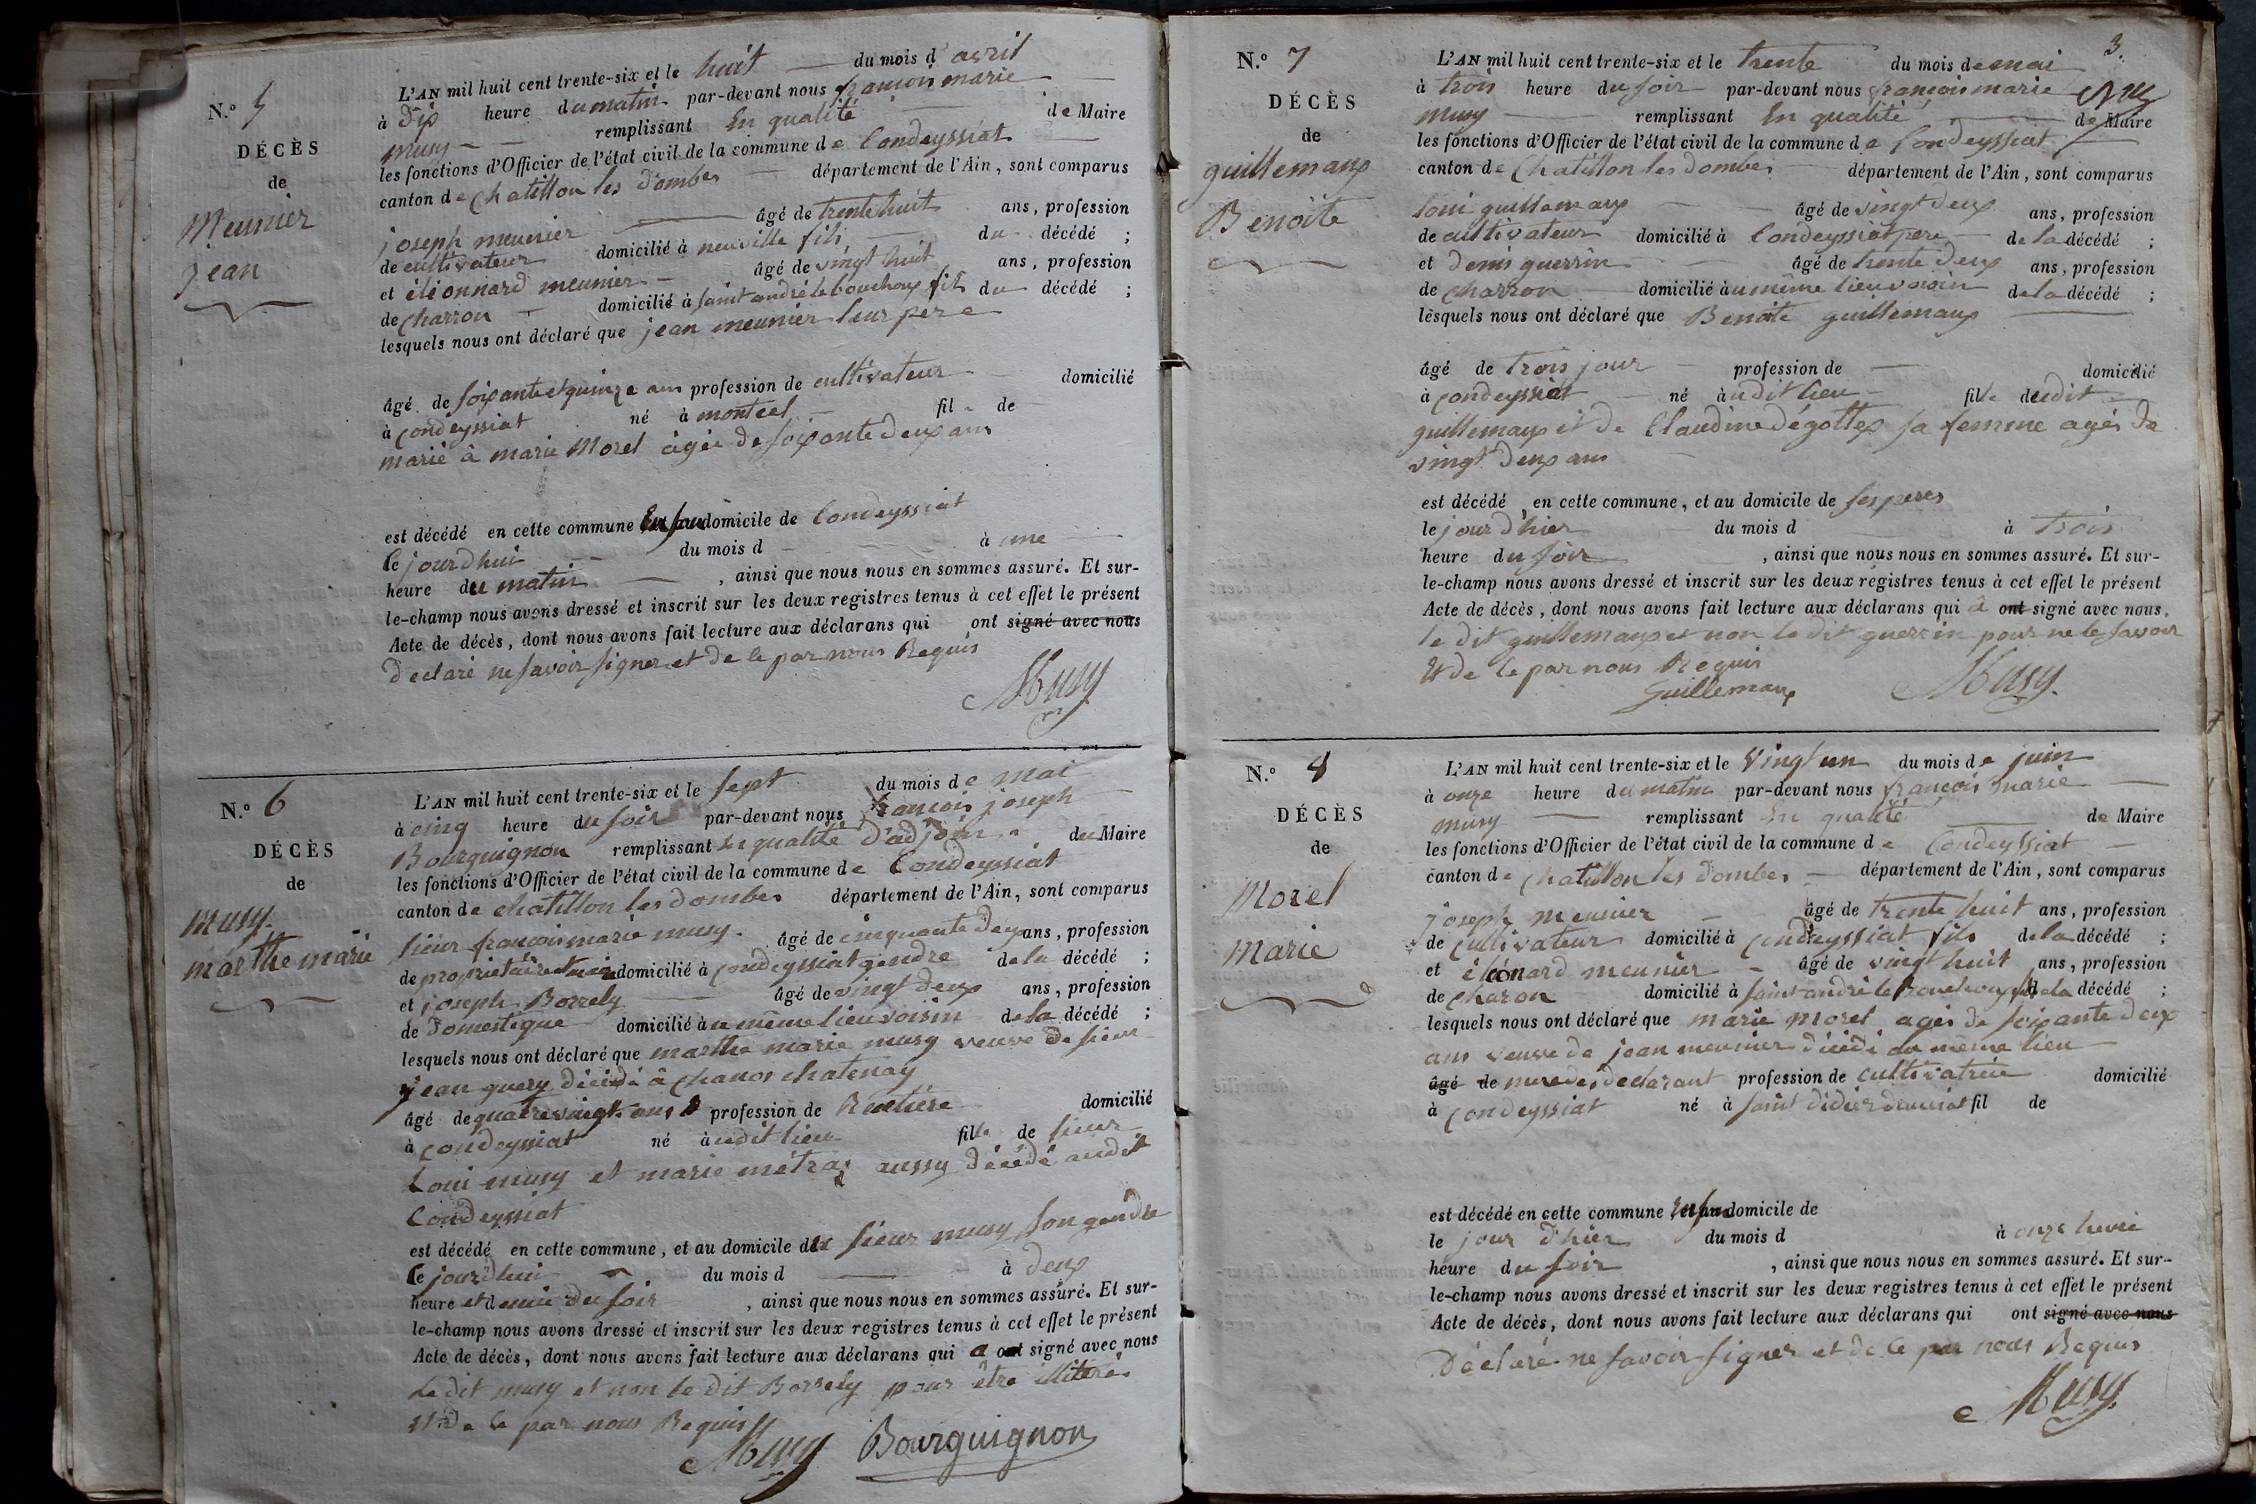 N.º 5
DÉCÈS
de
Meunier
jean
L'AN mil huit cent trente-six et le huit du mois d'avril
à Dix heure du matin par-devant nous françois marie
musy remplissant En qualité de Maire
les fonctions d'Officier de l'état civil de la commune de Condeyssiat
canton de Chatillon les Dombes département de l'Ain, sont comparus
joseph meunier âgé de trente huit ans, profession
de cultivateur domicilié à neuville fils du décédé ;
et éléonnard meunier âgé de vingt huit ans, profession
de charron domicilié à saint andré le bouchoux fils du décédé ;
lesquels nous ont déclaré que jean meunier leur pere
âgé de soixante et quinze ans profession de cultivateur domicilié
à Condeyssiat né à montcel fil de
marié à marie Morel âgée de soixante deux ans
est décédé en cette commune En son domicile de Condeyssiat
le jourdhui du mois d à une
heure du matin , ainsi que nous nous en sommes assuré. Et sur-
le-champ nous avons dressé et inscrit sur les deux registres tenus à cet effet le présent
Acte de décès, dont nous avons fait lecture aux déclarans qui ont signé avec nous
Declaré ne savoir signer et de ce par nous Requis
Musy
N.º 6
DÉCÈS
de
musy
marthe marie
L'AN mil huit cent trente-six et le sept du mois de mai
à cinq heure du soir par-devant nous françois joseph
Bourguignon remplissant en qualité d'adjoin du Maire
les fonctions d'Officier de l'état civil de la commune de Condeyssiat
canton de chatillon les dombes département de l'Ain, sont comparus
sieur françois marie musy âgé de cinquante deux ans, profession
de proprietaire domicilié à Condeyssiat gendre de la décédé ;
et joseph Borrely âgé de vingt deux ans, profession
de Domestique domicilié au même lieu voisin de la décédé ;
lesquels nous ont déclaré que marthe marie musy veuve de sieur
jean guery décédé à chanos chatenay
âgé de quatre vingt ans profession de Rentiére domicilié
à Condeyssiat né audit lieu fille de sieur
Loui musy et marie métras aussy décédé audit
Condeyssiat
est décédé en cette commune, et au domicile de sieur musy son gendre
le jourdhui du mois d à deux
heure et demie du soir , ainsi que nous nous en sommes assuré. Et sur-
le-champ nous avons dressé et inscrit sur les deux registres tenus à cet effet le présent
Acte de décès, dont nous avons fait lecture aux déclarans qui a ont signé avec nous
Ledit musy et non le dit Borrely pour être illiteré
Et de ce par nous Requis
Musy Bourguignon
3.
N.º 7
DÉCÈS
de
guillemaux
Benoite
L'AN mil huit cent trente-six et le trente du mois de mai
à trois heure du soir par-devant nous françois marie
musy remplissant En qualité de Maire
les fonctions d'Officier de l'état civil de la commune de Condeyssiat
canton de Chatillon les dombes département de l'Ain, sont comparus
Loui guillemaux âgé de vingt deux ans, profession
de cultivateur domicilié à Condeyssiat pere de la décédé ;
et Denis guerrin âgé de trente deux ans, profession
de charron domicilié au même lieu voisin de la décédé ;
lesquels nous ont déclaré que Benoite guillemaux
âgé de trois jour profession de domicilié
à Condeyssiat né audit lieu fille dudit
guillemaux et de Claudine Dégottex sa femme agés de
vingt deux ans
est décédé en cette commune, et au domicile de ses peres
le jour d'hier du mois d à trois
heure du soir , ainsi que nous nous en sommes assuré. Et sur-
le-champ nous avons dressé et inscrit sur les deux registres tenus à cet effet le présent
Acte de décès, dont nous avons fait lecture aux déclarans qui a ont signé avec nous,
le dit guillemaux et non le dit guerrin pour ne le savoir
Et de ce par nous Requis
Guillemaux Musy
N.º 8
DÉCÈS
de
Morel
Marie
L'AN mil huit cent trente-six et le vingt un du mois de juin
à onze heure du matin par-devant nous françois marie
musy remplissant En qualité de Maire
les fonctions d'Officier de l'état civil de la commune de Condeyssiat
canton de chatillon les Dombes département de l'Ain, sont comparus
joseph meunier âgé de trente huit ans, profession
de cultivateur domicilié à Condeyssiat fils de la décédé ;
et éléonard meunier âgé de vingt huit ans, profession
de charon domicilié à saint andré le Bouchoux fils de la décédé ;
lesquels nous ont déclaré que marie morel agés de soixante deux
ans veuve de jean meunier décédé du même lieu
âgé de mere des declarant profession de cultivatrice domicilié
à Condeyssiat né à saint didier fil de
est décédé en cette commune En son domicile de
le jour d'hier du mois d à onze heure
heure du soir , ainsi que nous nous en sommes assuré. Et sur-
le-champ nous avons dressé et inscrit sur les deux registres tenus à cet effet le présent
Acte de décès, dont nous avons fait lecture aux déclarans qui ont signé avec nous
Déclaré ne savoir signer et de ce par nous Requis
Musy